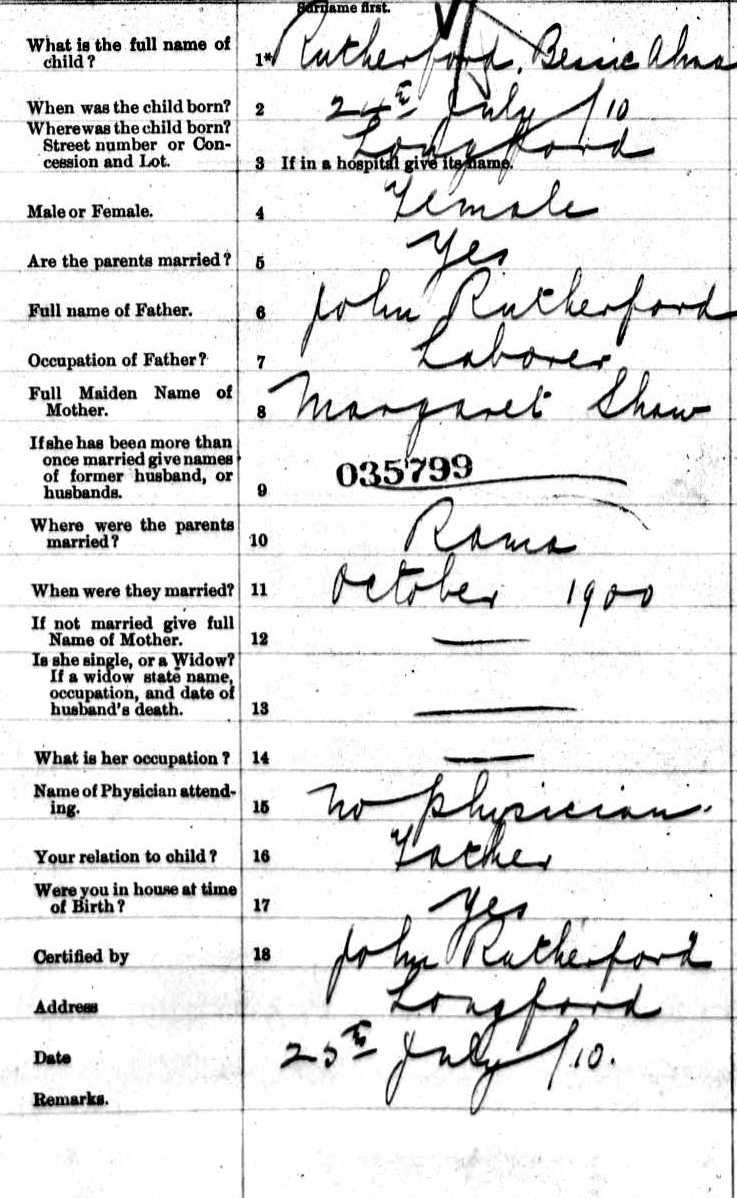 Surname first.
What is the full name of
child? 1* Rutherford, Bessie Alma
When was the child born? 2 24th July /10
Where was the child born?
Street number or Con-
cession and Lot. 3 If in a hospital give its name. Longford
Male or Female. 4 Female
Are the parents married? 5 Yes
Full name of Father. 6 John Rutherford
Occupation of Father? 7 Laborer
Full Maiden Name of
Mother. 8 Margaret Shaw
If she has been more than
once married give names
of former husband, or
husbands. 9 035799
Where were the parents
married? 10 Rama
When were they married? 11 October 1900
If not married give full
Name of Mother. 12 —
Is she single, or a Widow?
If a widow state name,
occupation, and date of
husband's death. 13 —
What is her occupation? 14 —
Name of Physician attend-
ing. 15 No physician.
Your relation to child? 16 Father
Were you in house at time
of Birth? 17 Yes
Certified by 18 John Rutherford
Address Longford
Date 25th July /10.
Remarks.